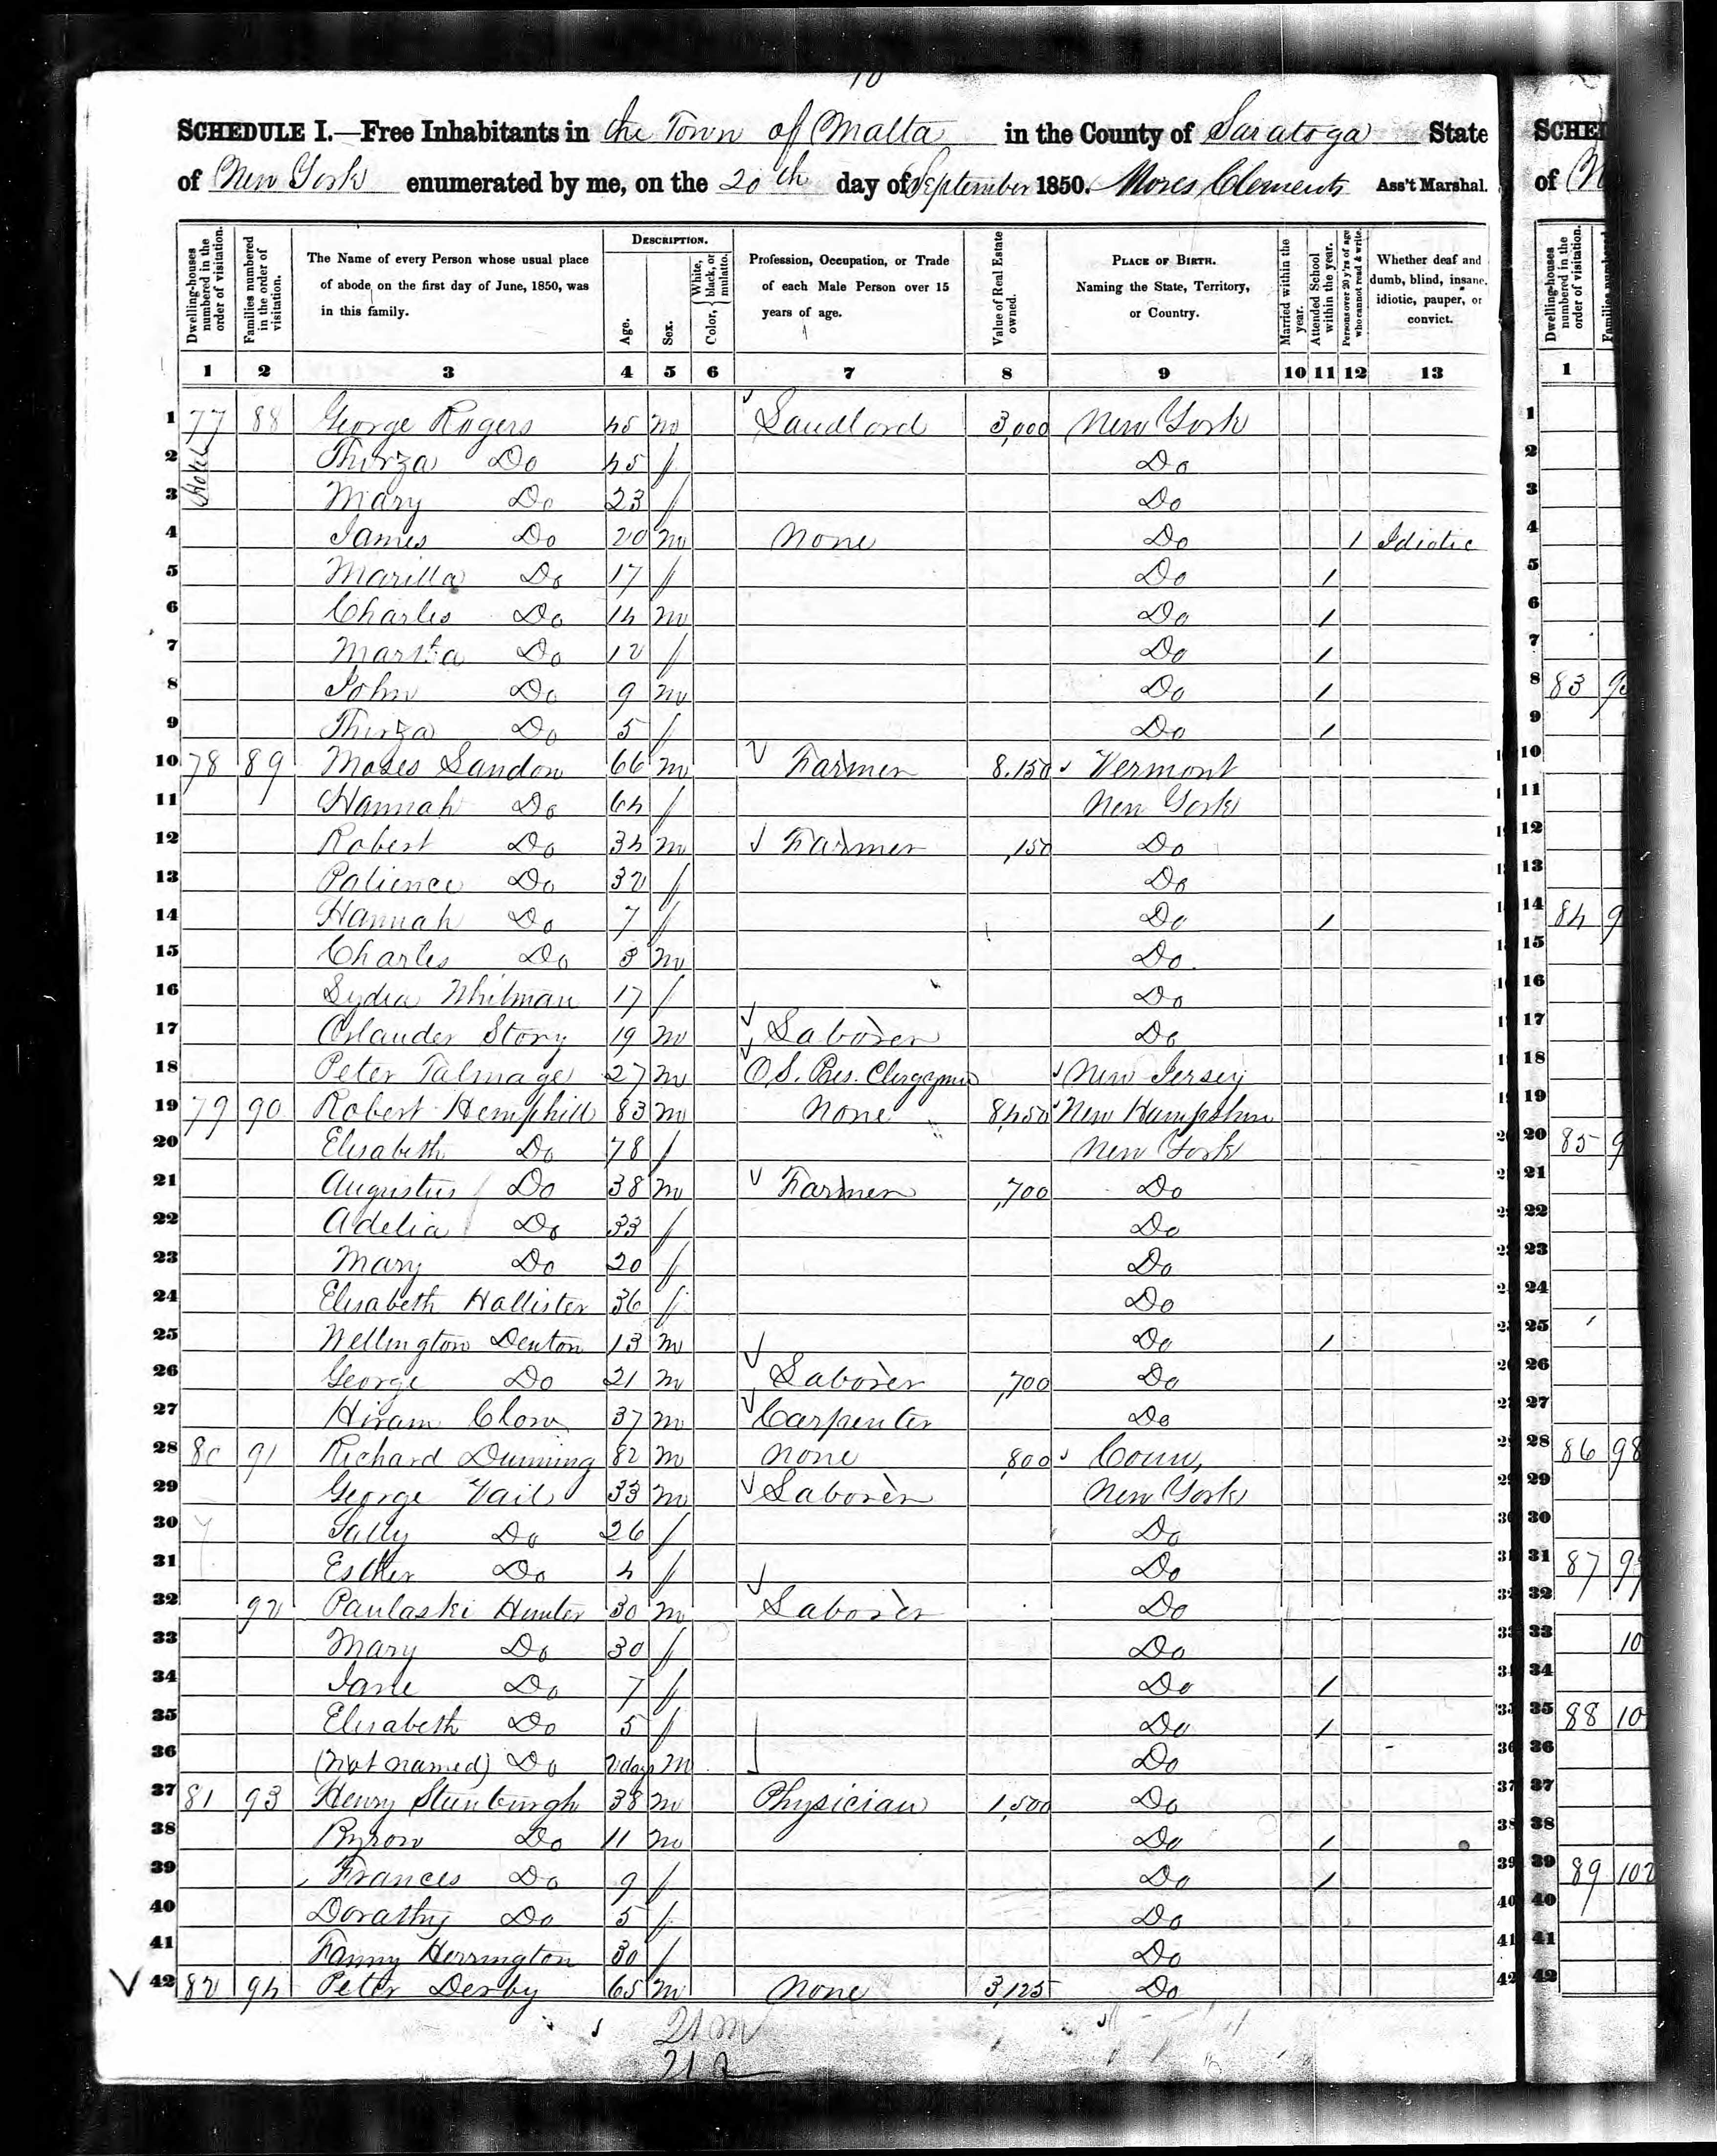 10
SCHEDULE I.—Free Inhabitants in the Town of Malta in the County of Saratoga State
of New York enumerated by me, on the 20th day of September 1850. Moses Clements Ass't Marshal.
Dwelling-houses numbered in the order of visitation. Families numbered in the order of visitation. The Name of every Person whose usual place of abode on the first day of June, 1850, was in this family. DESCRIPTION. Age. Sex. Color, White, black, or mulatto. Profession, Occupation, or Trade of each Male Person over 15 years of age. Value of Real Estate owned. PLACE OF BIRTH. Naming the State, Territory, or Country. Married within the year. Attended School within the year. Persons over 20 y'rs of age who cannot read & write. Whether deaf and dumb, blind, insane, idiotic, pauper, or convict.
1 2 3 4 5 6 7 8 9 10 11 12 13
1 77 88 George Rogers 45 m Landlord 3,000 New York
2 Hotel Thirza Do 45 f Do
3 Mary Do 23 f Do
4 James Do 20 m None Do 1 Idiotic
5 Marilla Do 17 f Do 1
6 Charles Do 14 m Do 1
7 Martha Do 12 f Do 1
8 John Do 9 m Do 1
9 Thirza Do 5 f Do 1
10 78 89 Moses Landon 66 m Farmer 8,150 Vermont
11 Hannah Do 64 f New York
12 Robert Do 34 m Farmer ,150 Do
13 Patience Do 32 f Do
14 Hannah Do 7 f Do 1
15 Charles Do 3 m Do
16 Lydia Whitman 17 f Do
17 Orlander Story 19 m Laborer Do
18 Peter Talmage 27 m O.S. Pres. Clergyman New Jersey
19 79 90 Robert Hemphill 83 m None 8,450 New Hampshire
20 Elisabeth Do 78 f New York
21 Augustus Do 38 m Farmer ,700 Do
22 Adelia Do 33 f Do
23 Mary Do 20 f Do
24 Elisabeth Hallister 36 f Do
25 Wellington Denton 13 m Do 1
26 George Do 21 m Laborer ,700 Do
27 Hiram Clow 37 m Carpenter Do
28 80 91 Richard Dunning 82 m None ,800 Conn,
29 George Vail 33 m Laborer New York
30 Sally Do 26 f Do
31 Esther Do 4 f Do
32 92 Paulaski Hunter 30 m Laborer Do
33 Mary Do 30 f Do
34 Jane Do 7 f Do 1
35 Elisabeth Do 5 f Do 1
36 (Not named) Do 2 days M Do
37 81 93 Henry Steenburgh 38 m Physician 1,500 Do
38 Byron Do 11 m Do 1
39 Frances Do 9 f Do 1
40 Dorathy Do 5 f Do
41 Fanny Herrington 30 f Do
42 82 94 Peter Derby 65 m None 3,125 Do
21 m
21
SCHED
of N
Dwelling-houses numbered in the order of visitation. Families numbered
1
1
2
3
4
5
6
7
8 83 9
9
10
11
12
13
14 84 9
15
16
17
18
19
20 85 9
21
22
23
24
25
26
27
28 86 98
29
30
31 87 99
32
33 10
34
35 88 10
36
37
38
39 89 102
40
41
42